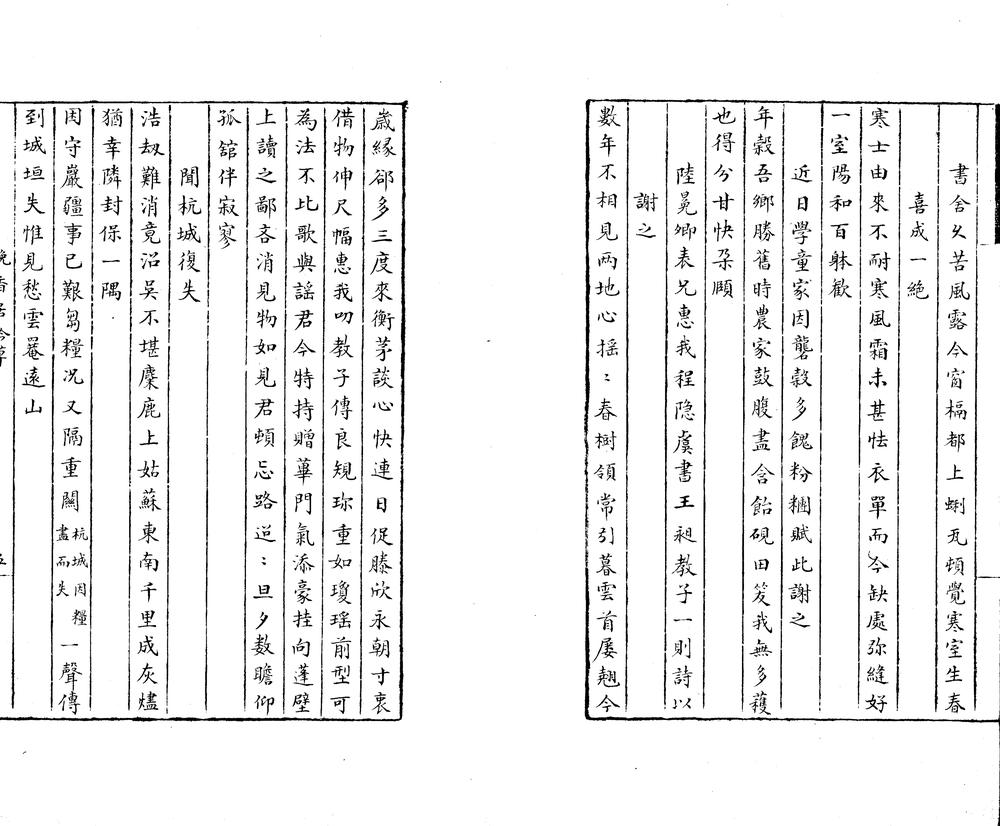 書舍久苦風露今窗槅都上蜊瓦頓覺寒室生春
喜成一絕
寒士由來不耐寒風霜未甚怯衣單而今缺處弥縫好
一室陽和百躰歡
近日學童家因礱穀多餽粉糰賦此謝之
年穀吾鄉勝舊時農家鼓腹盡含飴硯田笑我無多穫
也得分甘快朶頤
陸晃卿表兄惠我程隐虞書王昶教子一則詩以
謝之
數年不相見兩地心揺〻春樹領常引暮雲首屡翹今
歲緣郤多三度來衡茅談心快連日促膝欣永朝寸衷
借物伸尺幅惠我叨教子傳良規珎重如瓊瑶前型可
為法不比歌與謡君今特持贈蓽門氣添豪挂向蓬壁
上讀之鄙吝消見物如見君頓忘路迢〻旦夕数瞻仰
孤舘伴寂寥
聞杭城復失
浩刼難消竟沼吳不堪麋鹿上姑蘇東南千里成灰燼
猶幸隣封保一隅
困守嚴疆事已艱芻糧况又隔重關杭城因糧盡而失一聲傳
到城垣失惟見愁雲罨遠山